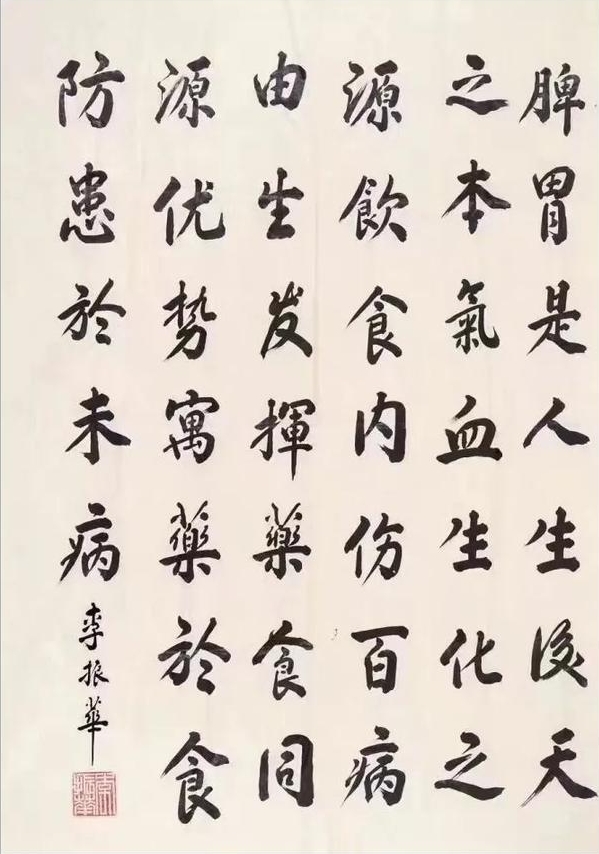 脾胃是人生后天
之本氣血生化之
源飲食内伤百病
由生发揮藥食同
源优势寓藥於食
防患於未病
李振華